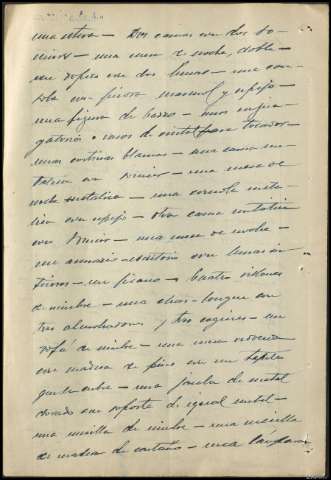 una estera — Dos camas con dos so-
miers — una mesa de noche, doble —
un ropero con dos lunas — una con-
sola con piedra marmol y espejo —
una figura de barro — unos
y vasos de metal para tocador —
unas cortinas blancas — una cama me-
talica con somier — una mesa de
noche metalica — una consola meta-
lica con espejo — otra cama metalica
con somier — una mesa de noche —
un armario-escritorio con
— un piano — cuatro sillones
de mimbre — una chais-longue con
tres almohadones y tres cogines — un
sofá de mimbre — una mesa
con madera de pino con un tapete
que la cubre — una jaula de metal
dorado con soporte de igual metal —
una mesilla de mimbre — una mesilla
de madera de castaño — una lampara